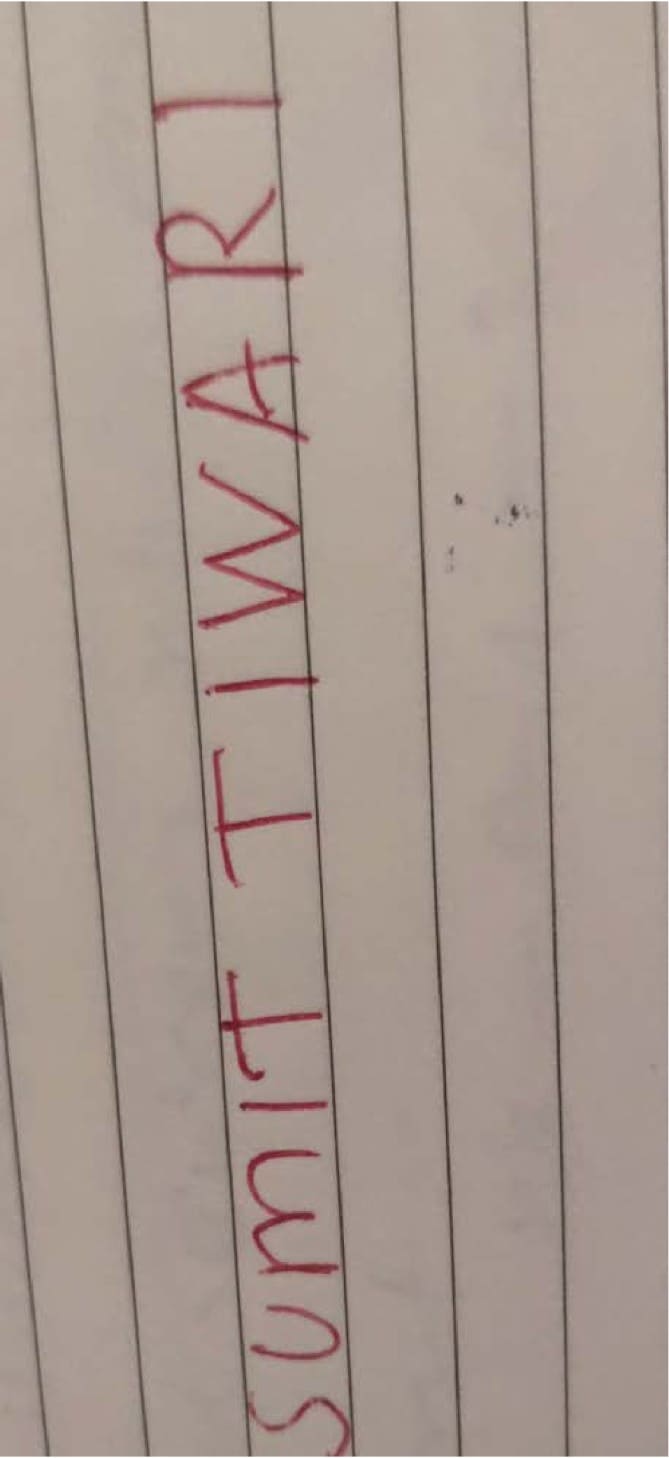 SUMIT TIWARI